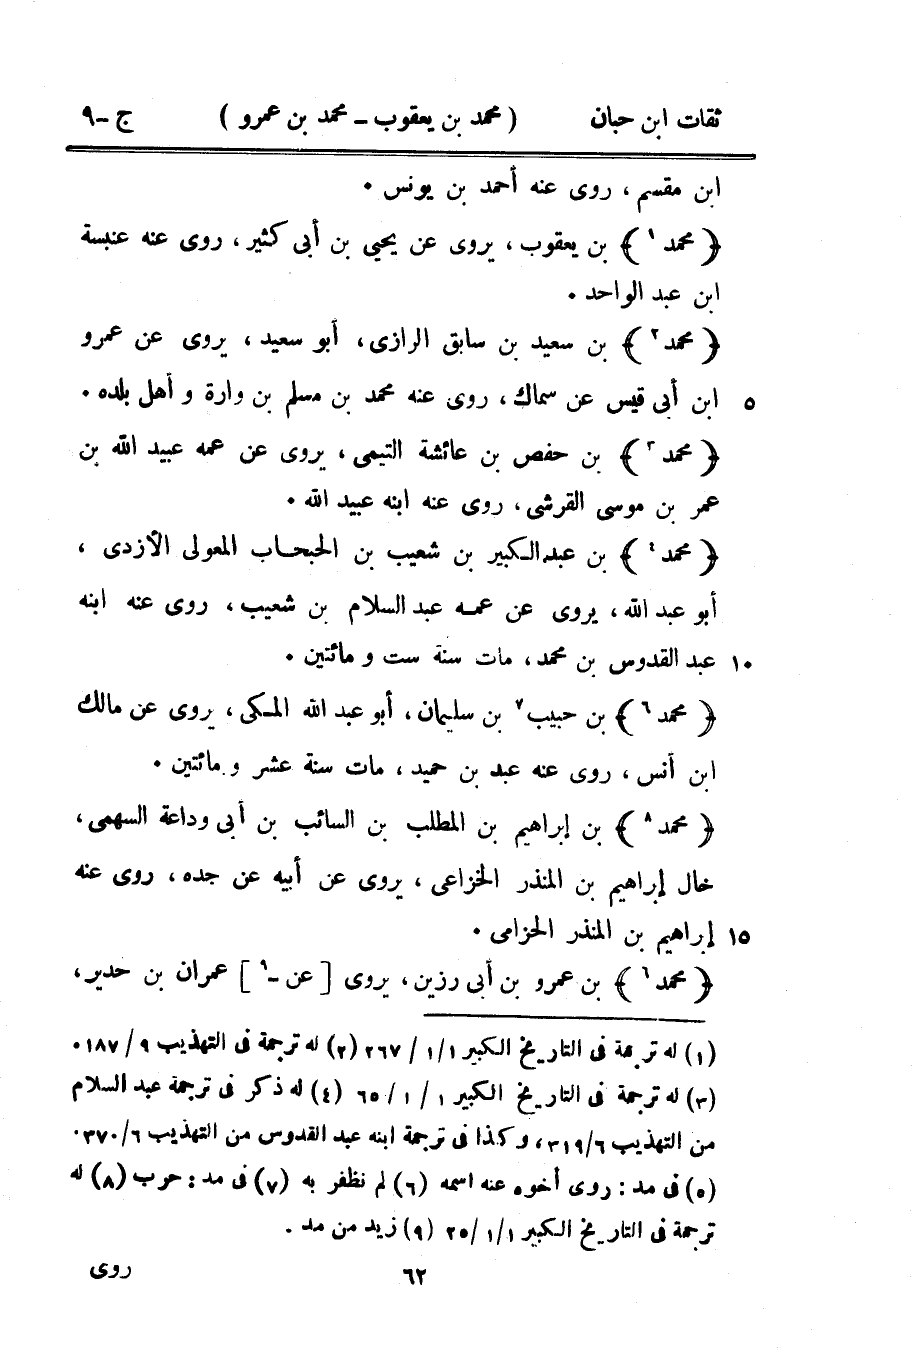 ثقات ابن حبان ( محمد بن يعقوب ــ محمد بن عمرو ) ج ــ ٩
ابن مقسم ، روى عنه أحمد بن يونس .
﴿ محمد ١ ﴾ بن يعقوب ، يروى عن يحيى بن أبى كثير ، روى عنه عنبسة
ابن عبد الواحد .
﴿ محمد ٢ ﴾ بن سعيد بن سابق الرازى ، أبو سعيد ، يروى عن عمرو
٥ ابن أبى قيس عن سماك ، روى عنه محمد بن مسلم بن وارة و أهل بلده .
﴿ محمد ٣ ﴾ بن حفص بن عائشة التيمى ، يروى عن عمه عبيد الله بن
عمر بن موسى القرشى ، روى عنه ابنه عبيد الله .
﴿ محمد ٤ ﴾ بن عبد الكبير بن شعيب بن الحبحاب المعولى الأزدى ،
أبو عبد الله ، يروى عن عمه عبد السلام بن شعيب ، روى عنه ابنه
١٠ عبد القدوس بن محمد ، مات سنة ست و مائتين .
﴿ محمد ٦ ﴾ بن حبيب ٧ بن سليمان ، أبو عبد الله المكى ، يروى عن مالك
ابن أنس ، روى عنه عبد بن حميد ، مات سنة عشر و مائتين .
﴿ محمد ٨ ﴾ بن إبراهيم بن المطلب بن السائب بن أبى وداعة السهمى ،
خال إبراهيم بن المنذر الخزاعى ، يروى عن أبيه عن جده ، روى عنه
١٥ إبراهيم بن المنذر الحزامى .
﴿ محمد ٦ ﴾ بن عمرو بن أبى رزين ، يروى [ عن - ٩ ] عمران بن حدير ،
(١) له ترجمة فى التاريخ الكبير ١/١ / ٢٦٧ (٢) له ترجمة فى التهذيب ٩ / ١٨٧ .
(٣) له ترجمة فى التاريخ الكبير ١ / ١ / ٦٥ (٤) له ذكر فى ترجمة عبد السلام
من التهذيب ٣١٩/٦ ، و كذا فى ترجمة ابنه عبد القدوس من التهذيب ٣٧٠/٦ .
(٥) فى مد : روى أخوه عنه اسمه (٦) لم نظفر به (٧) فى مد : حرب (٨) له
ترجمة فى التاريخ الكبير ١/١ /٢٥ (٩) زيد من مد .
٦٢ روى